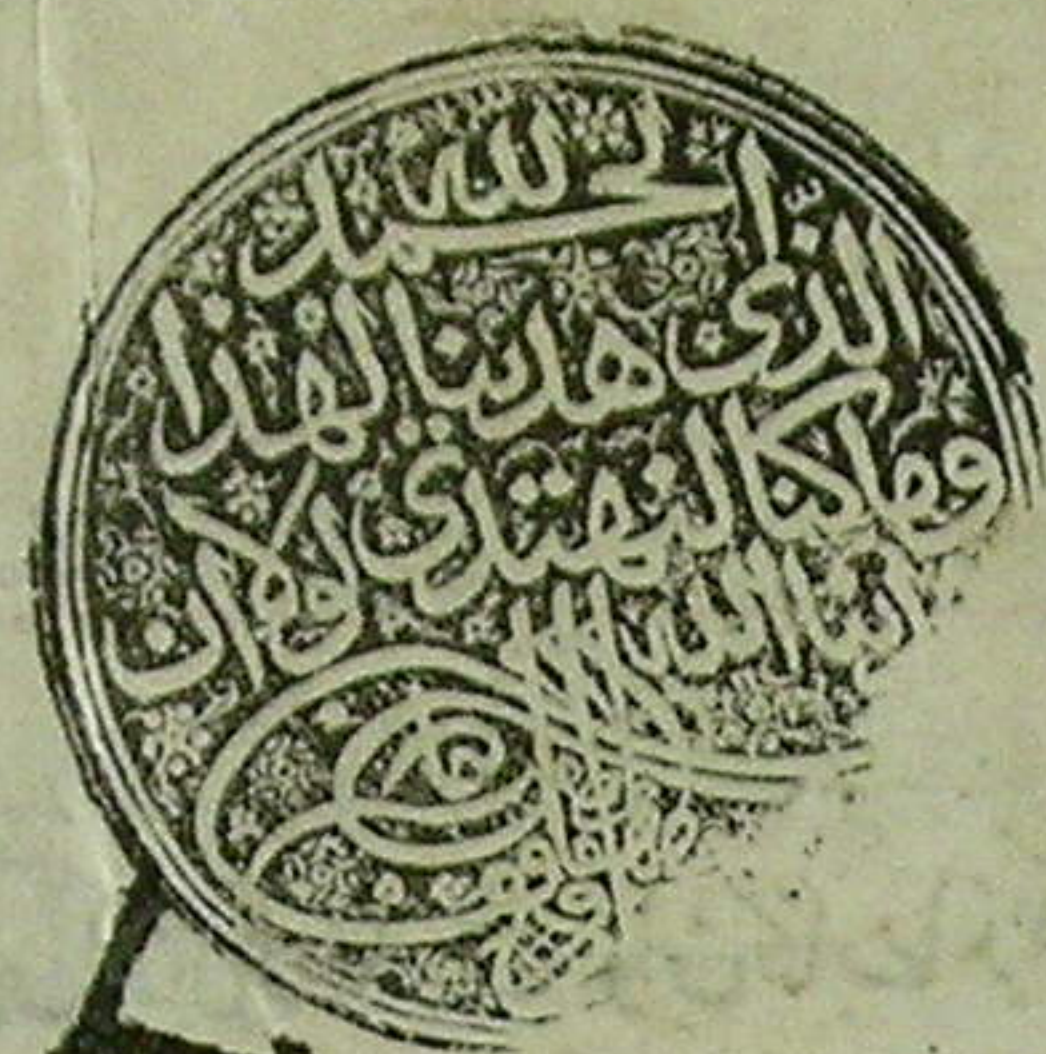 الحمد لله
الذّى هدينا لهذا
وما كنا لنهتدي لولا ان
هدينا الله